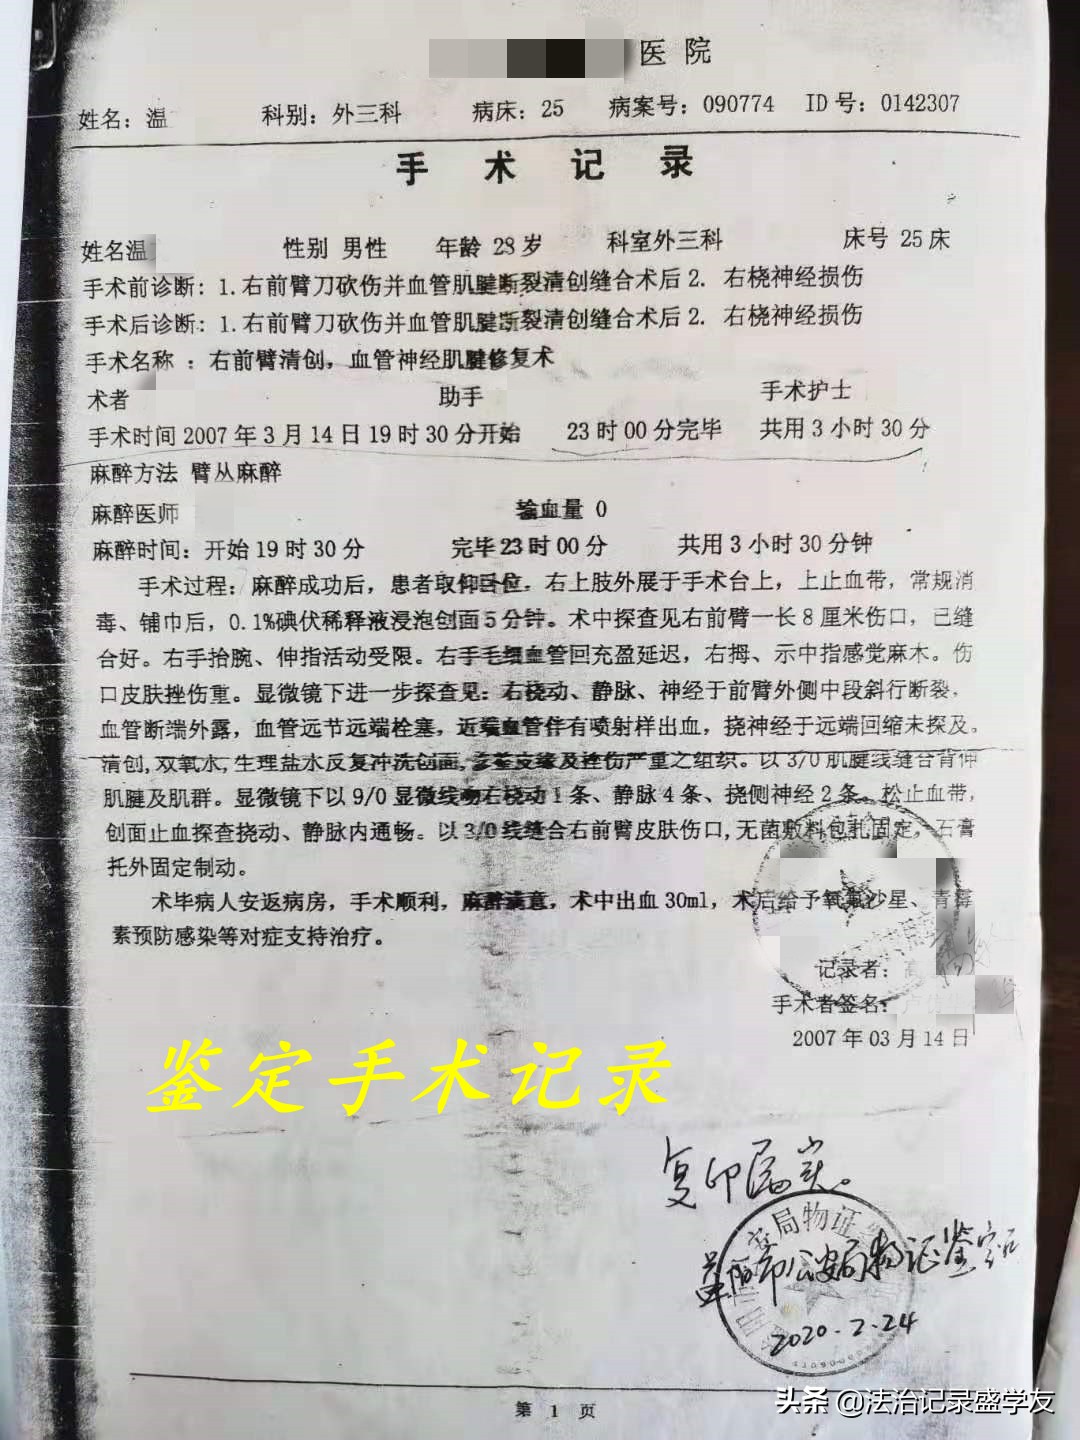 医院
姓名：温 科别：外三科 病床：25 病案号：090774 ID号：0142307
手 术 记 录
姓名温 性别 男性 年龄 28岁 科室外三科 床号 25床
手术前诊断：1.右前臂刀砍伤并血管肌腱断裂清创缝合术后2. 右桡神经损伤
手术后诊断：1.右前臂刀砍伤并血管肌腱断裂清创缝合术后2. 右桡神经损伤
手术名称 ：右前臂清创，血管神经肌腱修复术
术者 助手 手术护士
手术时间 2007年3月14日19时30分开始 23时00分完毕 共用3小时30分
麻醉方法 臂丛麻醉
麻醉医师 输血量 0
麻醉时间：开始19时30分 完毕23时00分 共用3小时30分钟
手术过程：麻醉成功后，患者取仰卧位。右上肢外展于手术台上，上止血带，常规消
毒、铺巾后，0.1%碘伏稀释液浸泡创面5分钟。术中探查见右前臂一长8厘米伤口，已缝
合好。右手抬腕、伸指活动受限。右手毛细血管回充盈延迟，右拇、示中指感觉麻木。伤
口皮肤挫伤重。显微镜下进一步探查见：右桡动、静脉、神经于前臂外侧中段斜行断裂，
血管断端外露，血管远节远端栓塞，近端血管伴有喷射样出血，挠神经于远端回缩未探及。
清创,双氧水,生理盐水反复冲洗创面,皮缘及挫伤严重之组织。以3/0肌腱线缝合背伸
肌腱及肌群。显微镜下以9/0显微线吻右桡动1条、静脉4条、挠侧神经2条。松止血带，
创面止血探查挠动、静脉内通畅。以3/0线缝合右前臂皮肤伤口,无菌敷料包扎固定，石膏
托外固定制动。
术毕病人安返病房，手术顺利，麻醉满意，术中出血30ml，术后给予氧氟沙星、青霉
素预防感染等对症支持治疗。
记录者：高
手术者签名：
2007年03月14日
鉴定手术记录
复印属实。
局物证
市公安局物证鉴定
2020.2.24
第 1 页
头条 @法治记录盛学友